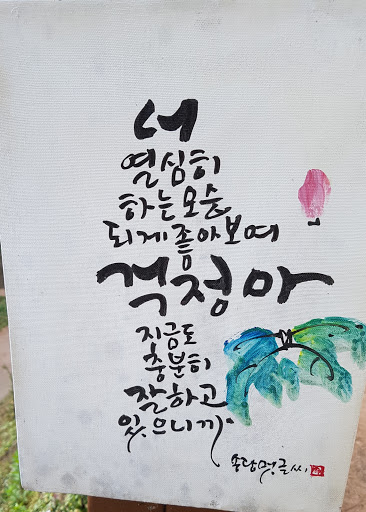 너
열심히
하는모습
되게좋아보여
걱정마
지금도
충분히
잘하고
있으니까
송당먹글씨